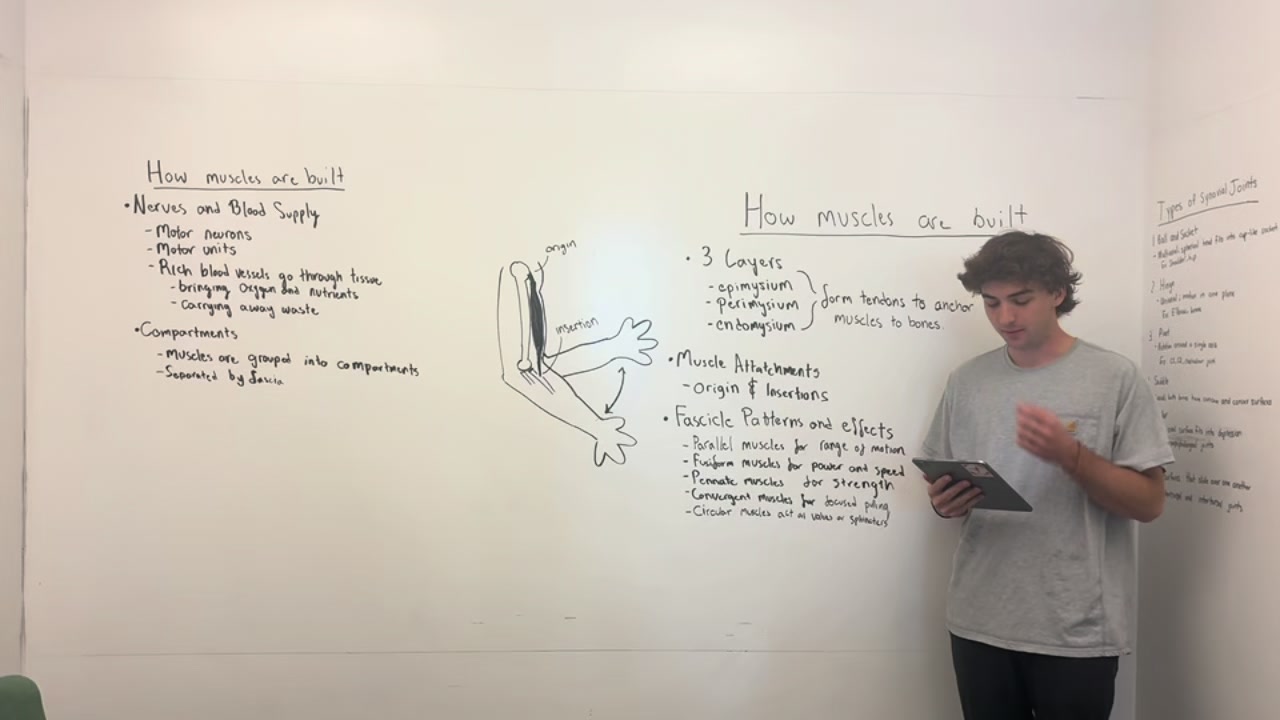 How muscles are built
• Nerves and Blood Supply
- Motor neurons
- Motor units
- Rich blood vessels go through tissue
- bringing oxygen and nutrients
- carrying away waste
• Compartments
- Muscles are grouped into compartments
- Separated by fascia
origin
insertion
How muscles are built
• 3 Layers
- epimysium
- perimysium
- endomysium
form tendons to anchor
muscles to bones.
• Muscle Attatchments
- Origin & Insertions
• Fascicle Patterns and effects
- Parallel muscles for range of motion
- Fusiform muscles for power and speed
- Pennate muscles for strength
- Convergent muscles for focused pulling
- Circular muscles act as valves or sphincters
Types of Synovial Joints
1. Ball and Socket
2. Hinge
3. Pivot
Saddle